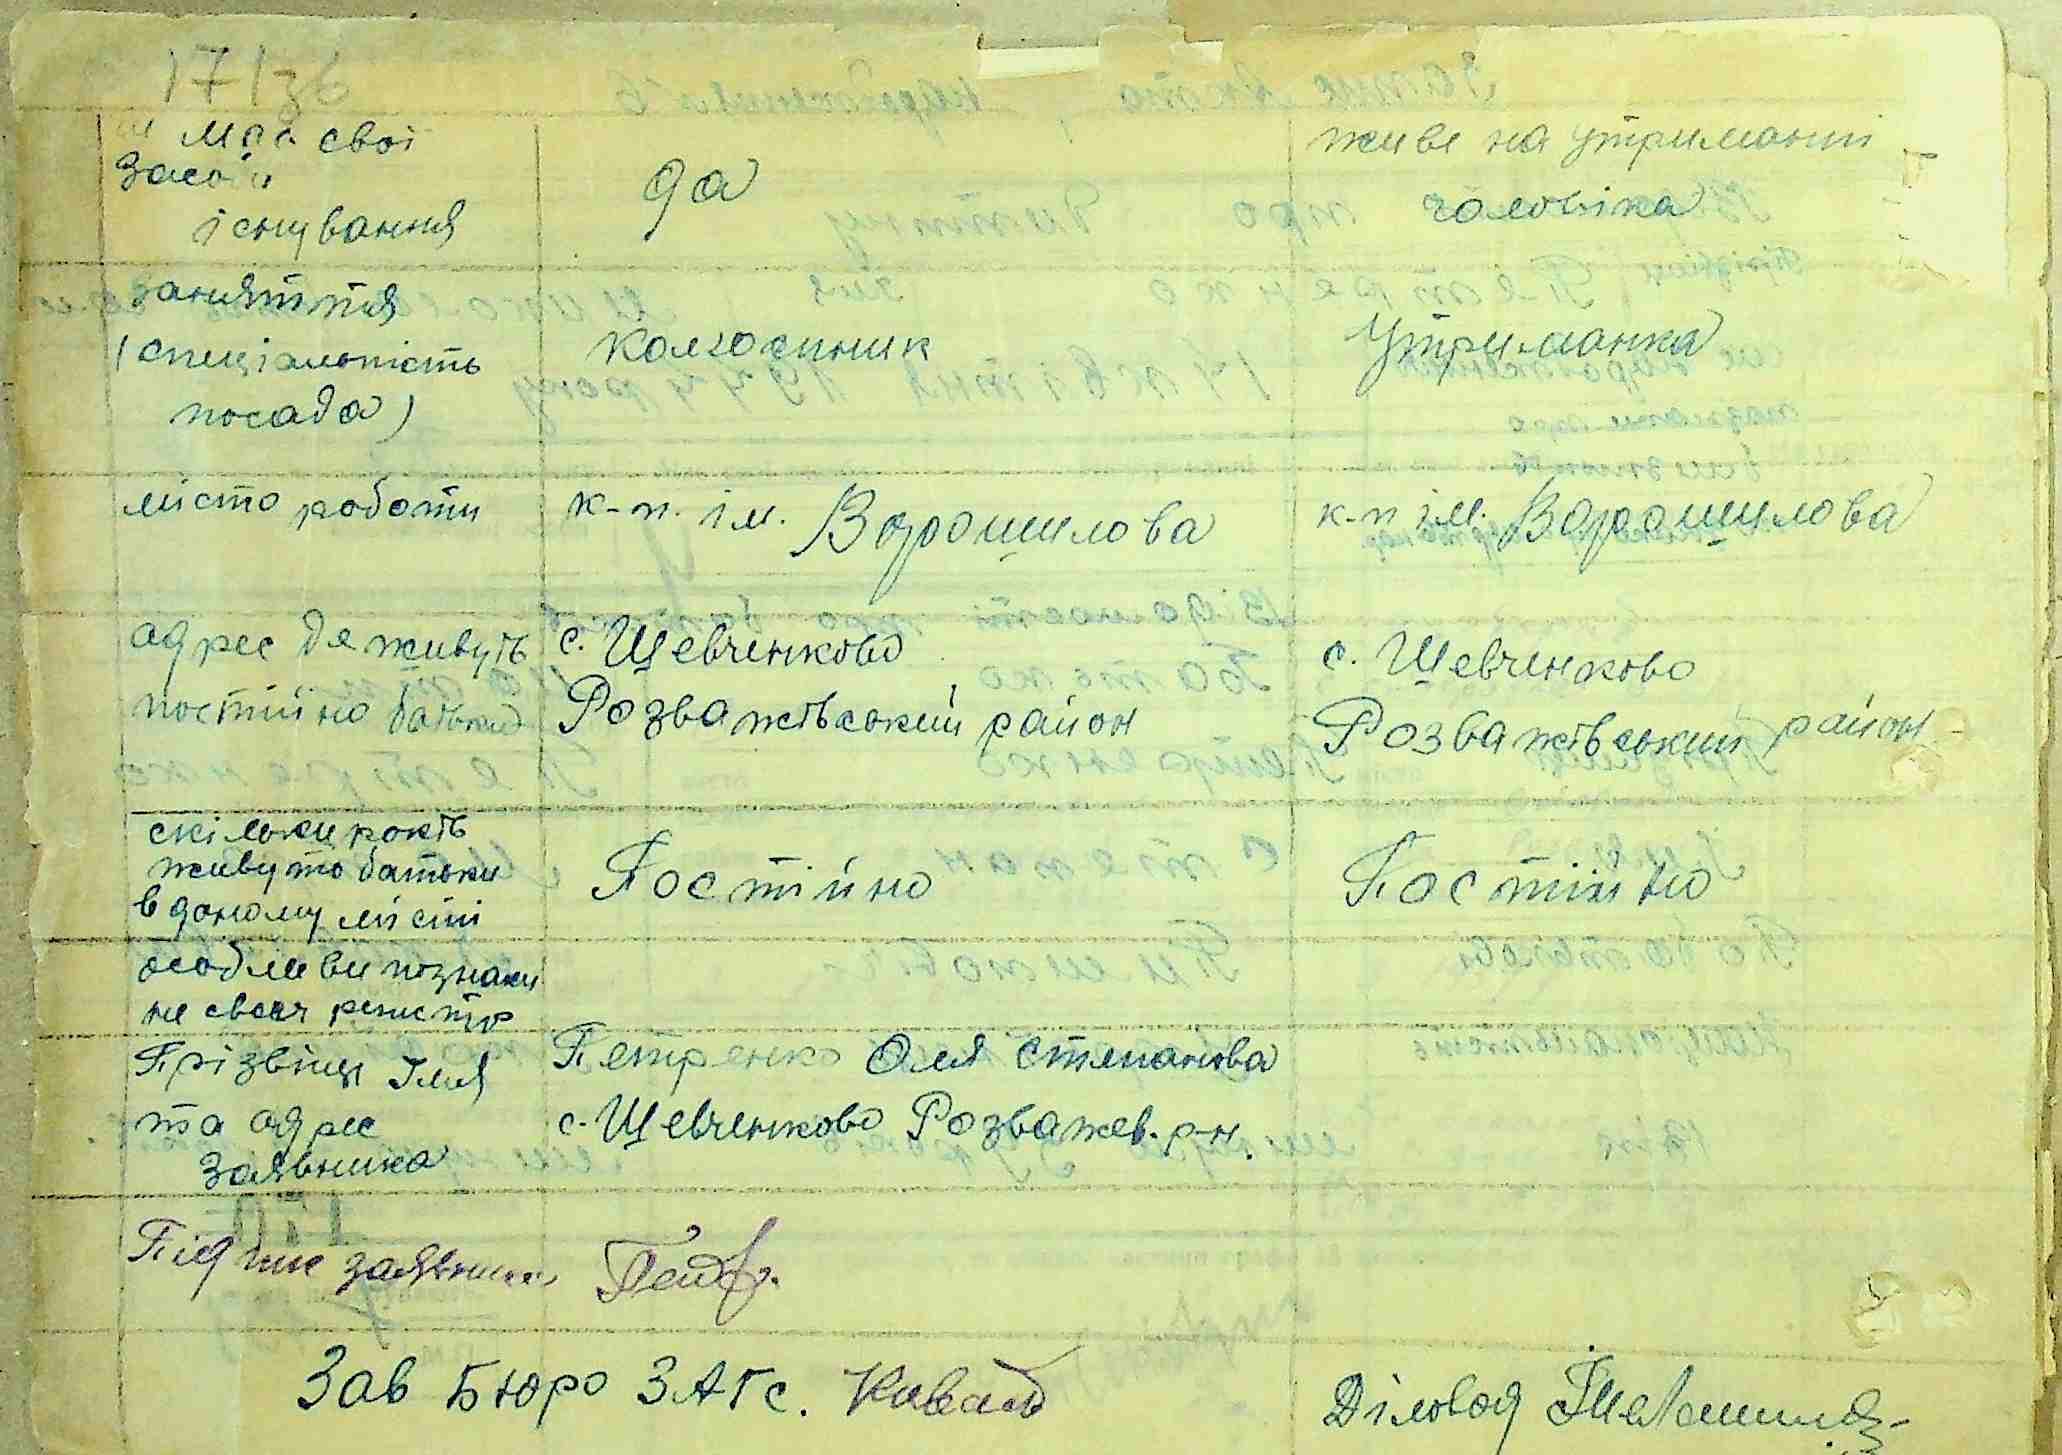 17 136
чи має свої
засоби
існування
да
живе на утриманні
чоловіка
заняття
(спеціальність
посада)
колгоспник
Утриманка
місто роботи
к-п. ім. Ворошилова
к-п ім. Ворошилова
адрес де живуть
постійно батьки
с. Шевченково
Розважівський район
с. Шевченково
Розважівський район
скільки років
живуть батьки
в даному місті
Постійно
Постійно
особливи познаки
Прізвище Імя
та адрес
заявника
Петренко Оля Степанова
с. Шевченково Розважев. р-н.
Підпис заявника
Зав Бюро ЗАГС. Коваль
Діловод